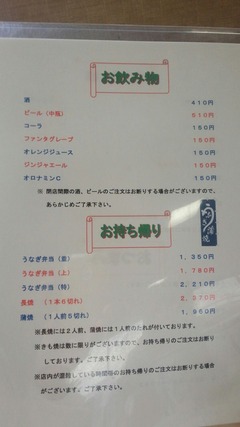 お飲み物
酒 410円
ビール(中瓶) 510円
コーラ 150円
ファンタグレープ 150円
オレンジジュース 150円
ジンジャエール 150円
オロナミンC 150円
※ 閉店間際の酒、ビールのご注文はお断りする場合がございますので、
あらかじめご了承下さい。
お持ち帰り
うなぎ弁当(並) 1,350円
うなぎ弁当(上) 1,780円
うなぎ弁当(特) 2,210円
長焼 (1本6切れ) 2,370円
蒲焼 (1人前5切れ) 1,960円
※長焼には2人前、蒲焼には1人前のたれが付いております。
※きも焼は数に限りがございますので、お持ち帰りのご注文はお断り
しております。ご了承下さい。
※店内が混雑している時間帯のお持ち帰りのご注文はお断りする場合
がございます。ご了承下さい。